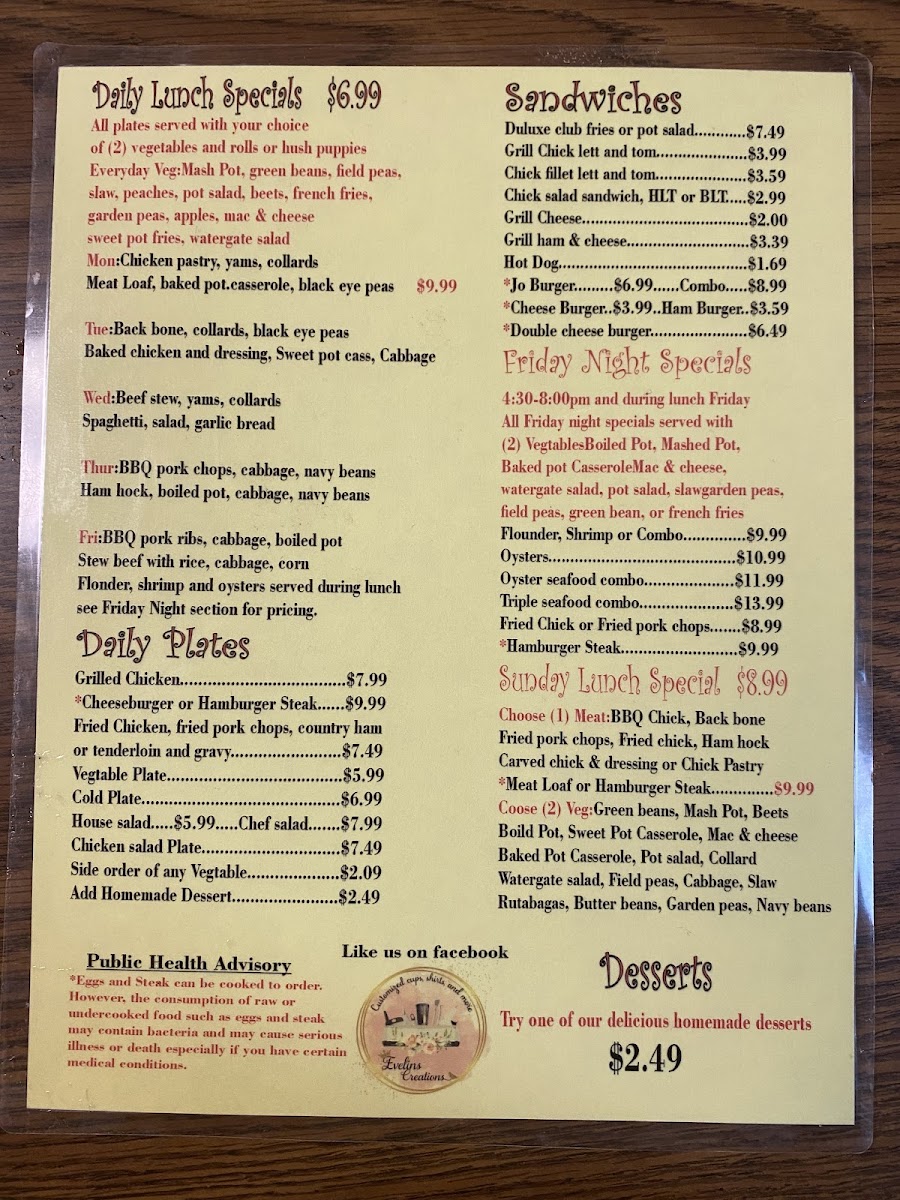 Daily Lunch Specials $6.99
All plates served with your choice
of (2) vegetables and rolls or hush puppies
Everyday Veg:Mash Pot, green beans, field peas,
slaw, peaches, pot salad, beets, french fries,
garden peas, apples, mac & cheese
sweet pot fries, watergate salad
Mon:Chicken pastry, yams, collards
Meat Loaf, baked pot.casserole, black eye peas $9.99
Tue:Back bone, collards, black eye peas
Baked chicken and dressing, Sweet pot cass, Cabbage
Wed:Beef stew, yams, collards
Spaghetti, salad, garlic bread
Thur:BBQ pork chops, cabbage, navy beans
Ham hock, boiled pot, cabbage, navy beans
Fri:BBQ pork ribs, cabbage, boiled pot
Stew beef with rice, cabbage, corn
Flonder, shrimp and oysters served during lunch
see Friday Night section for pricing.
Daily Plates
Grilled Chicken....................................$7.99
*Cheeseburger or Hamburger Steak......$9.99
Fried Chicken, fried pork chops, country ham
or tenderloin and gravy........................$7.49
Vegtable Plate......................................$5.99
Cold Plate...........................................$6.99
House salad.....$5.99.....Chef salad.......$7.99
Chicken salad Plate..............................$7.49
Side order of any Vegtable....................$2.09
Add Homemade Dessert.......................$2.49
Sandwiches
Duluxe club fries or pot salad............$7.49
Grill Chick lett and tom.....................$3.99
Chick fillet lett and tom.....................$3.59
Chick salad sandwich, HLT or BLT.....$2.99
Grill Cheese......................................$2.00
Grill ham & cheese............................$3.39
Hot Dog...........................................$1.69
*Jo Burger.........$6.99......Combo.....$8.99
*Cheese Burger..$3.99..Ham Burger..$3.59
*Double cheese burger......................$6.49
Friday Night Specials
4:30-8:00pm and during lunch Friday
All Friday night specials served with
(2) VegtablesBoiled Pot, Mashed Pot,
Baked pot CasseroleMac & cheese,
watergate salad, pot salad, slawgarden peas,
field peas, green bean, or french fries
Flounder, Shrimp or Combo..............$9.99
Oysters..........................................$10.99
Oyster seafood combo....................$11.99
Triple seafood combo.....................$13.99
Fried Chick or Fried pork chops.......$8.99
*Hamburger Steak..........................$9.99
Sunday Lunch Special $8.99
Choose (1) Meat:BBQ Chick, Back bone
Fried pork chops, Fried chick, Ham hock
Carved chick & dressing or Chick Pastry
*Meat Loaf or Hamburger Steak..............$9.99
Coose (2) Veg:Green beans, Mash Pot, Beets
Boild Pot, Sweet Pot Casserole, Mac & cheese
Baked Pot Casserole, Pot salad, Collard
Watergate salad, Field peas, Cabbage, Slaw
Rutabagas, Butter beans, Garden peas, Navy beans
Public Health Advisory
*Eggs and Steak can be cooked to order.
However, the consumption of raw or
undercooked food such as eggs and steak
may contain bacteria and may cause serious
illness or death especially if you have certain
medical conditions.
Like us on facebook
Customized cups, shirts, and more
Evelins
Creations
Desserts
Try one of our delicious homemade desserts
$2.49